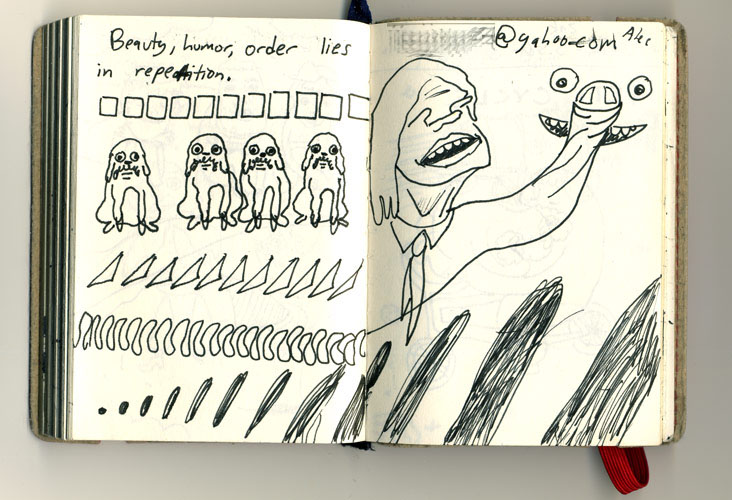 Beauty, humor, order lies
in repetition.
@yahoo.com Alec